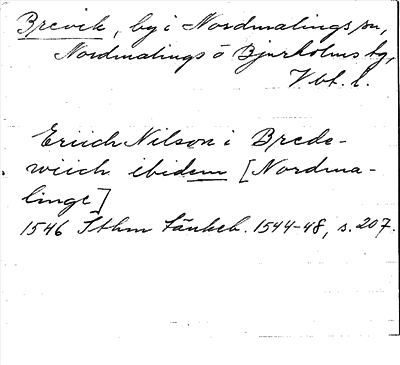 Brevik, by i Nordmalings sn,
Nordmalings o Bjurholms tg,
Vbt. l.
Eriich Nilson i Brede-
wiich ibidem [Nordma-
linge]
1546 Sthm tänkeb. 1544-48, s. 207.